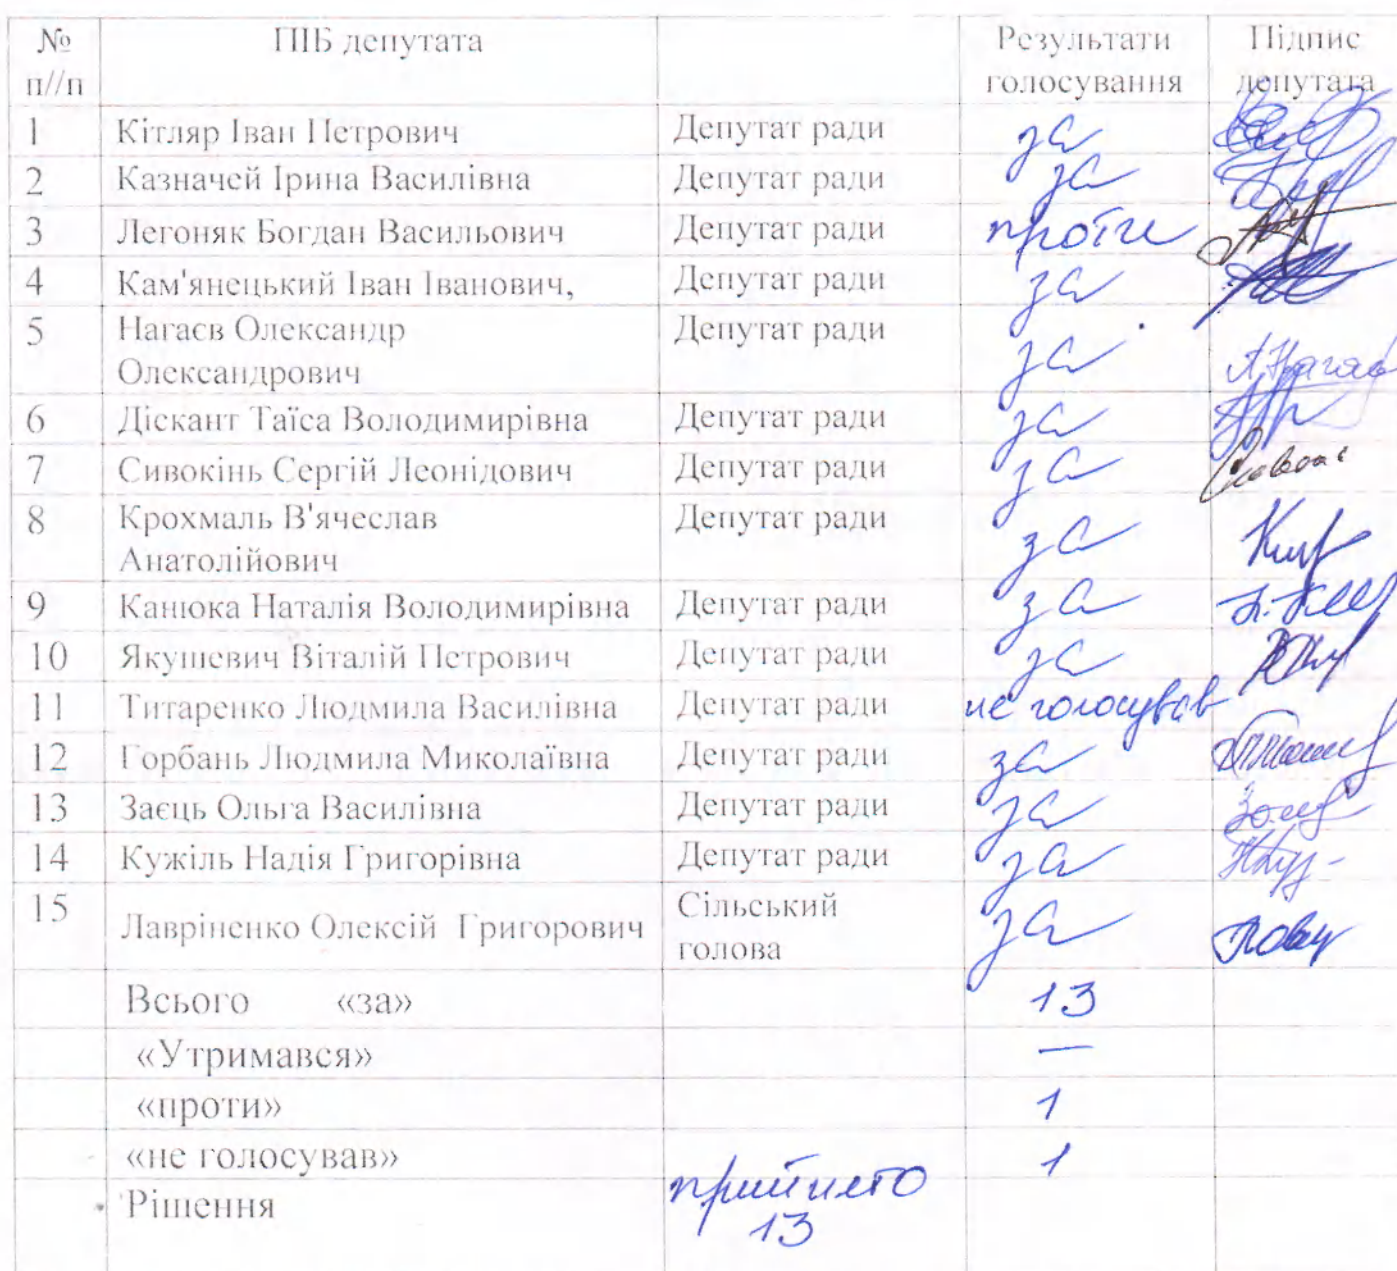 № ПІБ депутата Результати Підпис
п//п голосування депутата
1 Кітляр Іван Петрович Депутат ради за
2 Казначей Ірина Василівна Депутат ради за
3 Легоняк Богдан Васильович Депутат ради проти
4 Кам'янецький Іван Іванович, Депутат ради за
5 Нагаєв Олександр Депутат ради за
Олександрович
6 Діскант Таїса Володимирівна Депутат ради за
7 Сивокінь Сергій Леонідович Депутат ради за
8 Крохмаль В'ячеслав Депутат ради за
Анатолійович
9 Канюка Наталія Володимирівна Депутат ради за
10 Якушевич Віталій Петрович Депутат ради за
11 Титаренко Людмила Василівна Депутат ради не голосував
12 Горбань Людмила Миколаївна Депутат ради за
13 Заєць Ольга Василівна Депутат ради за
14 Кужіль Надія Григорівна Депутат ради за
15 Лавріненко Олексій Григорович Сільський за
голова
Всього «за» 13
«Утримався» —
«проти» 1
«не голосував» 1
Рішення прийнято
13